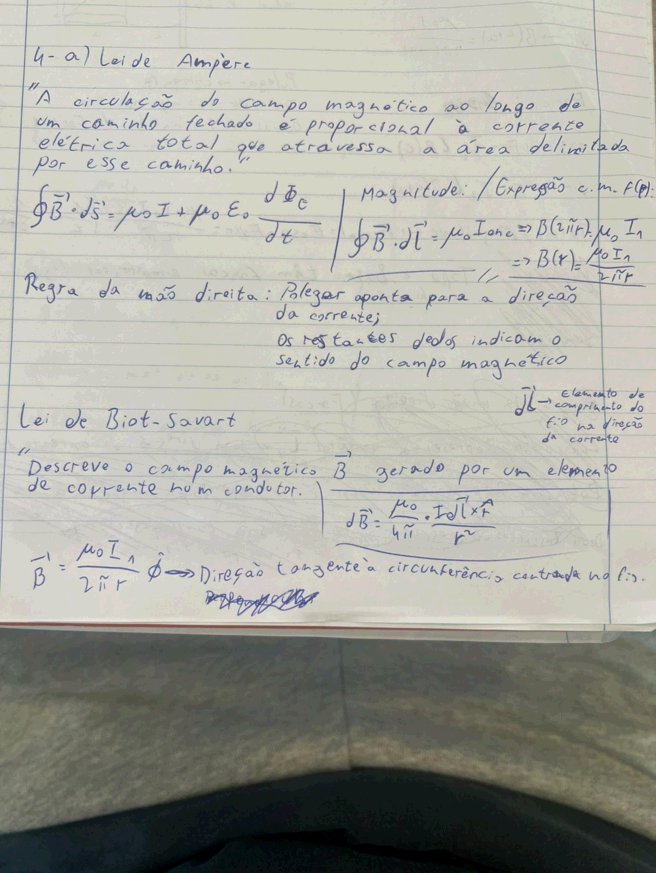 4-a) Lei de Ampère
"A circulação do campo magnético ao longo de
um caminho fechado é proporcional à corrente
elétrica total que atravessa a área delimitada
por esse caminho."
∮B⃗·ds⃗ = μ₀I + μ₀ε₀ dΦe/dt
Magnitude: / Expressão c.m. f(r):
∮B⃗·dl⃗ = μ₀Ienc => B(2πr) = μ₀I₁
=> B(r) = μ₀I₁/2πr
Regra da mão direita: Polegar aponta para a direção
da corrente;
Os restantes dedos indicam o
sentido do campo magnético
dl⃗ → Elemento de
comprimento do
fio na direção
da corrente
Lei de Biot-Savart
"Descreve o campo magnético B⃗ gerado por um elemento
de corrente num condutor.
dB⃗ = μ₀/4π · I dl⃗ × r̂/r²
B⃗ = μ₀I₁/2πr ϕ̂ → Direção tangente à circunferência centrada no fio.